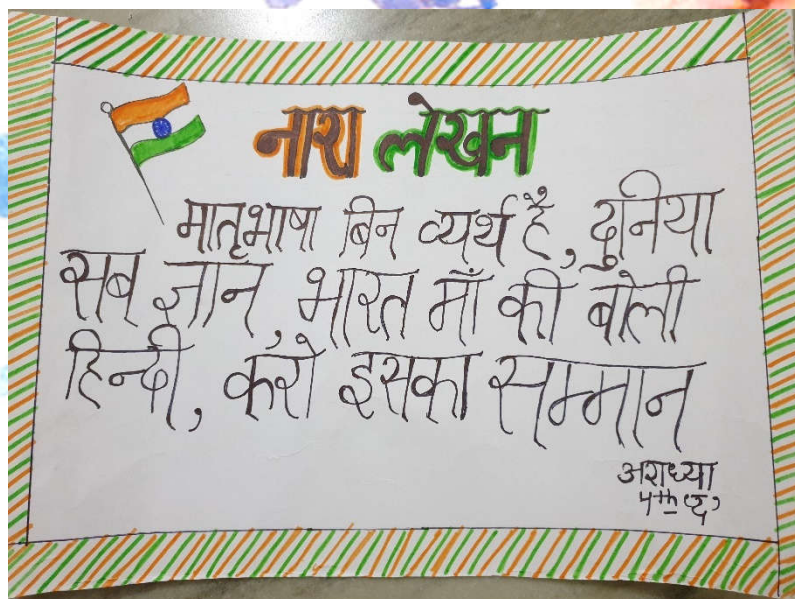 नारा लेखन
मातृभाषा बिन व्यर्थ है, दुनिया
सब ज्ञान, भारत माँ की बोली
हिन्दी, करो इसका सम्मान
अराध्या
4th